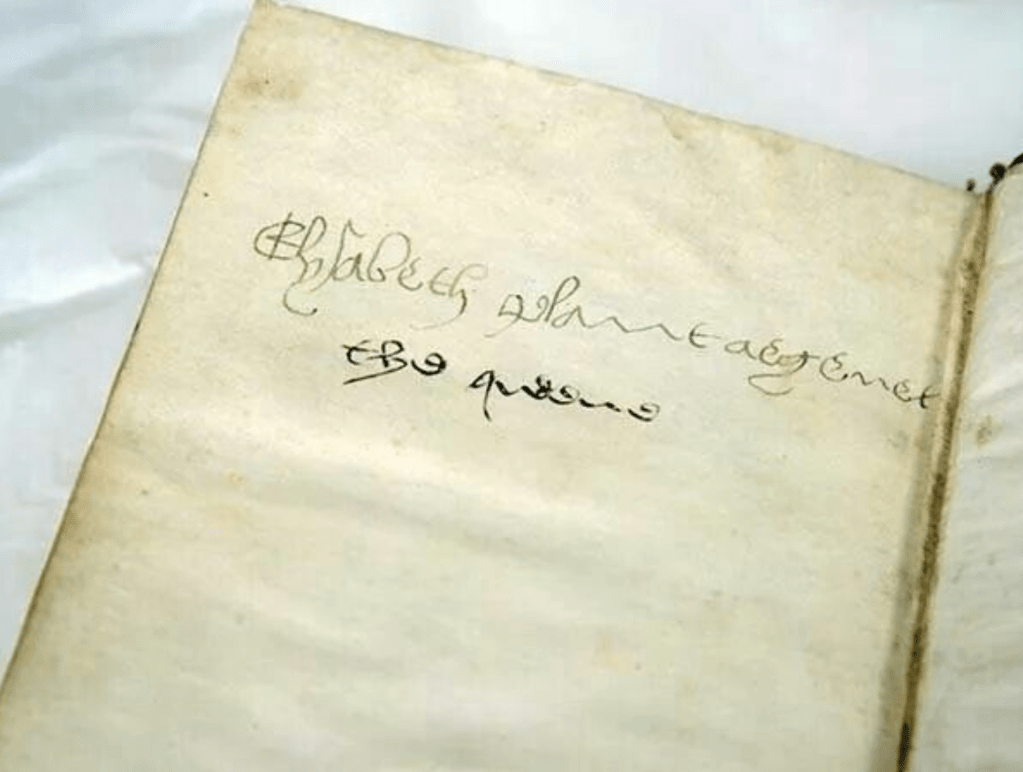 Elysabeth plantaegenet
the queene